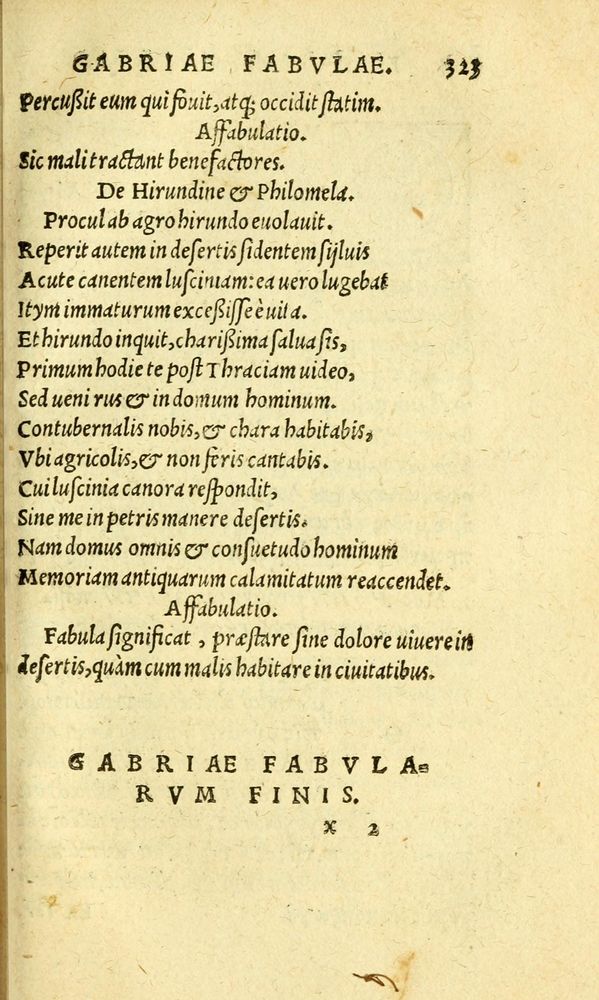 GABRIAE FABVLAE. 323
Percußit eum qui fouit, atq; occidit ſtatim.
Affabulatio.
Sic mali tractant benefactores.
De Hirundine & Philomela.
Procul ab agro hirundo euolauit.
Reperit autem in deſertis ſidentem ſyluis
Acute canentem luſciniam: ea uero lugebat
Itym immaturum exceßiſſe è uita.
Et hirundo inquit, charißima ſalua ſis,
Primum hodie te poſt Thraciam uideo,
Sed ueni rus & in domum hominum.
Contubernalis nobis, & chara habitabis,
Vbi agricolis, & non feris cantabis.
Cui luſcinia canora reſpondit,
Sine me in petris manere deſertis.
Nam domus omnis & conſuetudo hominum
Memoriam antiquarum calamitatum reaccendet.
Affabulatio.
Fabula ſignificat, præſtare ſine dolore uiuere in
deſertis, quàm cum malis habitare in ciuitatibus.
GABRIAE FABVLA=
RVM FINIS.
x 2